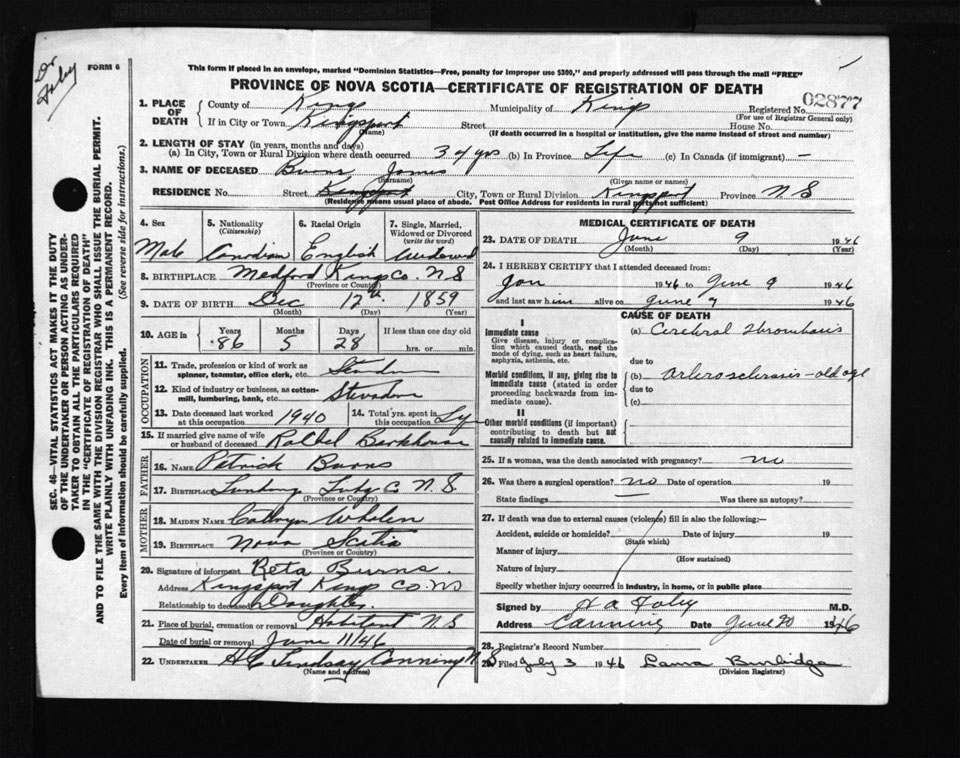 Dr
Foley
FORM 6
This form if placed in an envelope, marked "Dominion Statistics—Free, penalty for improper use $300," and properly addressed will pass through the mail "FREE"
PROVINCE OF NOVA SCOTIA—CERTIFICATE OF REGISTRATION OF DEATH
02877
1. PLACE OF DEATH County of Kings Municipality of Kings Registered No.
(For use of Registrar General only)
If in City or Town Kingsport Street House No.
(Name) (If death occurred in a hospital or institution, give the name instead of street and number)
2. LENGTH OF STAY (in years, months and days)
(a) In City, Town or Rural Division where death occurred 34 yrs (b) In Province Life (c) In Canada (if immigrant) —
3. NAME OF DECEASED Burns James
(Surname) (Given name or names)
RESIDENCE No. Street Kingsport City, Town or Rural Division Kingsport Province N S
(Residence means usual place of abode. Post Office Address for residents in rural parts not sufficient)
4. Sex 5. Nationality 6. Racial Origin 7. Single, Married,
(Citizenship) Widowed or Divorced
(write the word)
Male Canadian English Widowed
8. BIRTHPLACE Medford Kings Co. N S
(Province or Country)
9. DATE OF BIRTH Dec 12th 1859
(Month) (Day) (Year)
10. AGE in Years Months Days If less than one day old
86 5 28 hrs. or min.
OCCUPATION
11. Trade, profession or kind of work as
spinner, teamster, office clerk, etc.
12. Kind of industry or business, as cotton-
mill, lumbering, bank, etc. Stevadore
13. Date deceased last worked 14. Total yrs. spent in
at this occupation 1940 this occupation Life
15. If married give name of wife
or husband of deceased Barkhouse
FATHER
16. NAME Patrick Burns
17. BIRTHPLACE Co N. S.
(Province or Country)
MOTHER
18. MAIDEN NAME Cathryn Whalen
19. BIRTHPLACE Nova Scotia
(Province or Country)
20. Signature of informant Reta Burns.
Address Kingsport Kings Co. NS
Relationship to deceased Daughter.
21. Place of burial, cremation or removal Habitant N S
Date of burial or removal June 11/46
22. UNDERTAKER H C Lindsay Canning N S
(Name and address)
MEDICAL CERTIFICATE OF DEATH
23. DATE OF DEATH June 9 1946
(Month) (Day) (Year)
24. I HEREBY CERTIFY that I attended deceased from:
Jan 1946 to June 9 1946
and last saw him alive on June 9 1946
CAUSE OF DEATH
I
Immediate cause (a) Cerebral thrombosis
Give disease, injury or complica-
tion which caused death, not the
mode of dying, such as heart failure,
asphyxia, asthenia, etc. due to
Morbid conditions, if any, giving rise to (b) Arterosclerosis - old age
immediate cause (stated in order due to
proceeding backwards from im-
mediate cause). (c)
II
Other morbid conditions (if important)
contributing to death but not
causally related to immediate cause.
25. If a woman, was the death associated with pregnancy? no
26. Was there a surgical operation? no Date of operation 19
State findings Was there an autopsy?
27. If death was due to external causes (violence) fill in also the following:—
Accident, suicide or homicide? Date of injury 19
(State which)
Manner of injury
(How sustained)
Nature of injury
Specify whether injury occurred in industry, in home, or in public place
Signed by H A Foley M.D.
Address Canning Date June 20 1946
28. Registrar's Record Number
29. Filed July 3 1946 Laura Burbidge
(Division Registrar)
SEC. 46—VITAL STATISTICS ACT MAKES IT THE DUTY
OF THE UNDERTAKER OR PERSON ACTING AS UNDER-
TAKER TO OBTAIN ALL THE PARTICULARS REQUIRED
IN THE "CERTIFICATE OF REGISTRATION OF DEATH"
AND TO FILE THE SAME WITH THE DIVISION REGISTRAR WHO SHALL ISSUE THE BURIAL PERMIT.
WRITE PLAINLY WITH UNFADING INK. THIS IS A PERMANENT RECORD.
Every item of information should be carefully supplied. (See reverse side for instructions.)